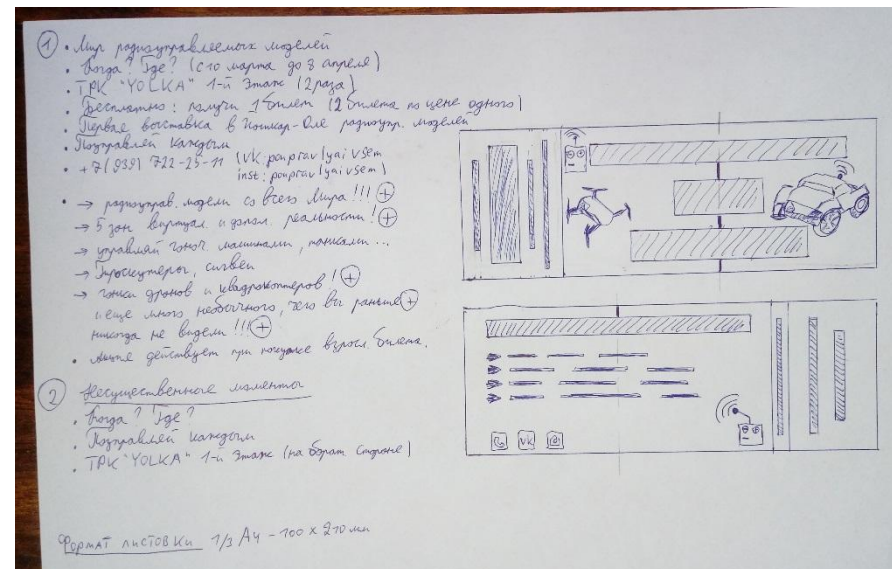 ① • Мир радиоуправляемых моделей
• Когда? Где? (с 10 марта до 8 апреля)
• ТРК "YOLKA" 1-й этаж (2 раза)
• Бесплатно: получи 1 билет (2 билета по цене одного)
• Первая выставка в Йошкар-Оле радиоупр. моделей
• Поуправляй каждым
• +7(939) 722-25-11 (vk: poupravlyai vsem
inst: poupravlyai vsem)
• → радиоуправ. модели со всего Мира!!! +
→ 5 зон виртуал. и допол. реальности! +
→ управляй гоноч. машинами, танками...
→ Гироскутеры, сигвеи
→ гонки дронов и квадрокоптеров! +
и еще много необычного, чего вы раньше +
никогда не видели!!! +
• Акция действует при покупке взросл. билета.
② Несущественные моменты
• Когда? Где?
• Поуправляй каждым
• ТРК "YOLKA" 1-й этаж (на обрат стороне)
Формат листовки 1/3 А4 - 100 x 210 мм
VK